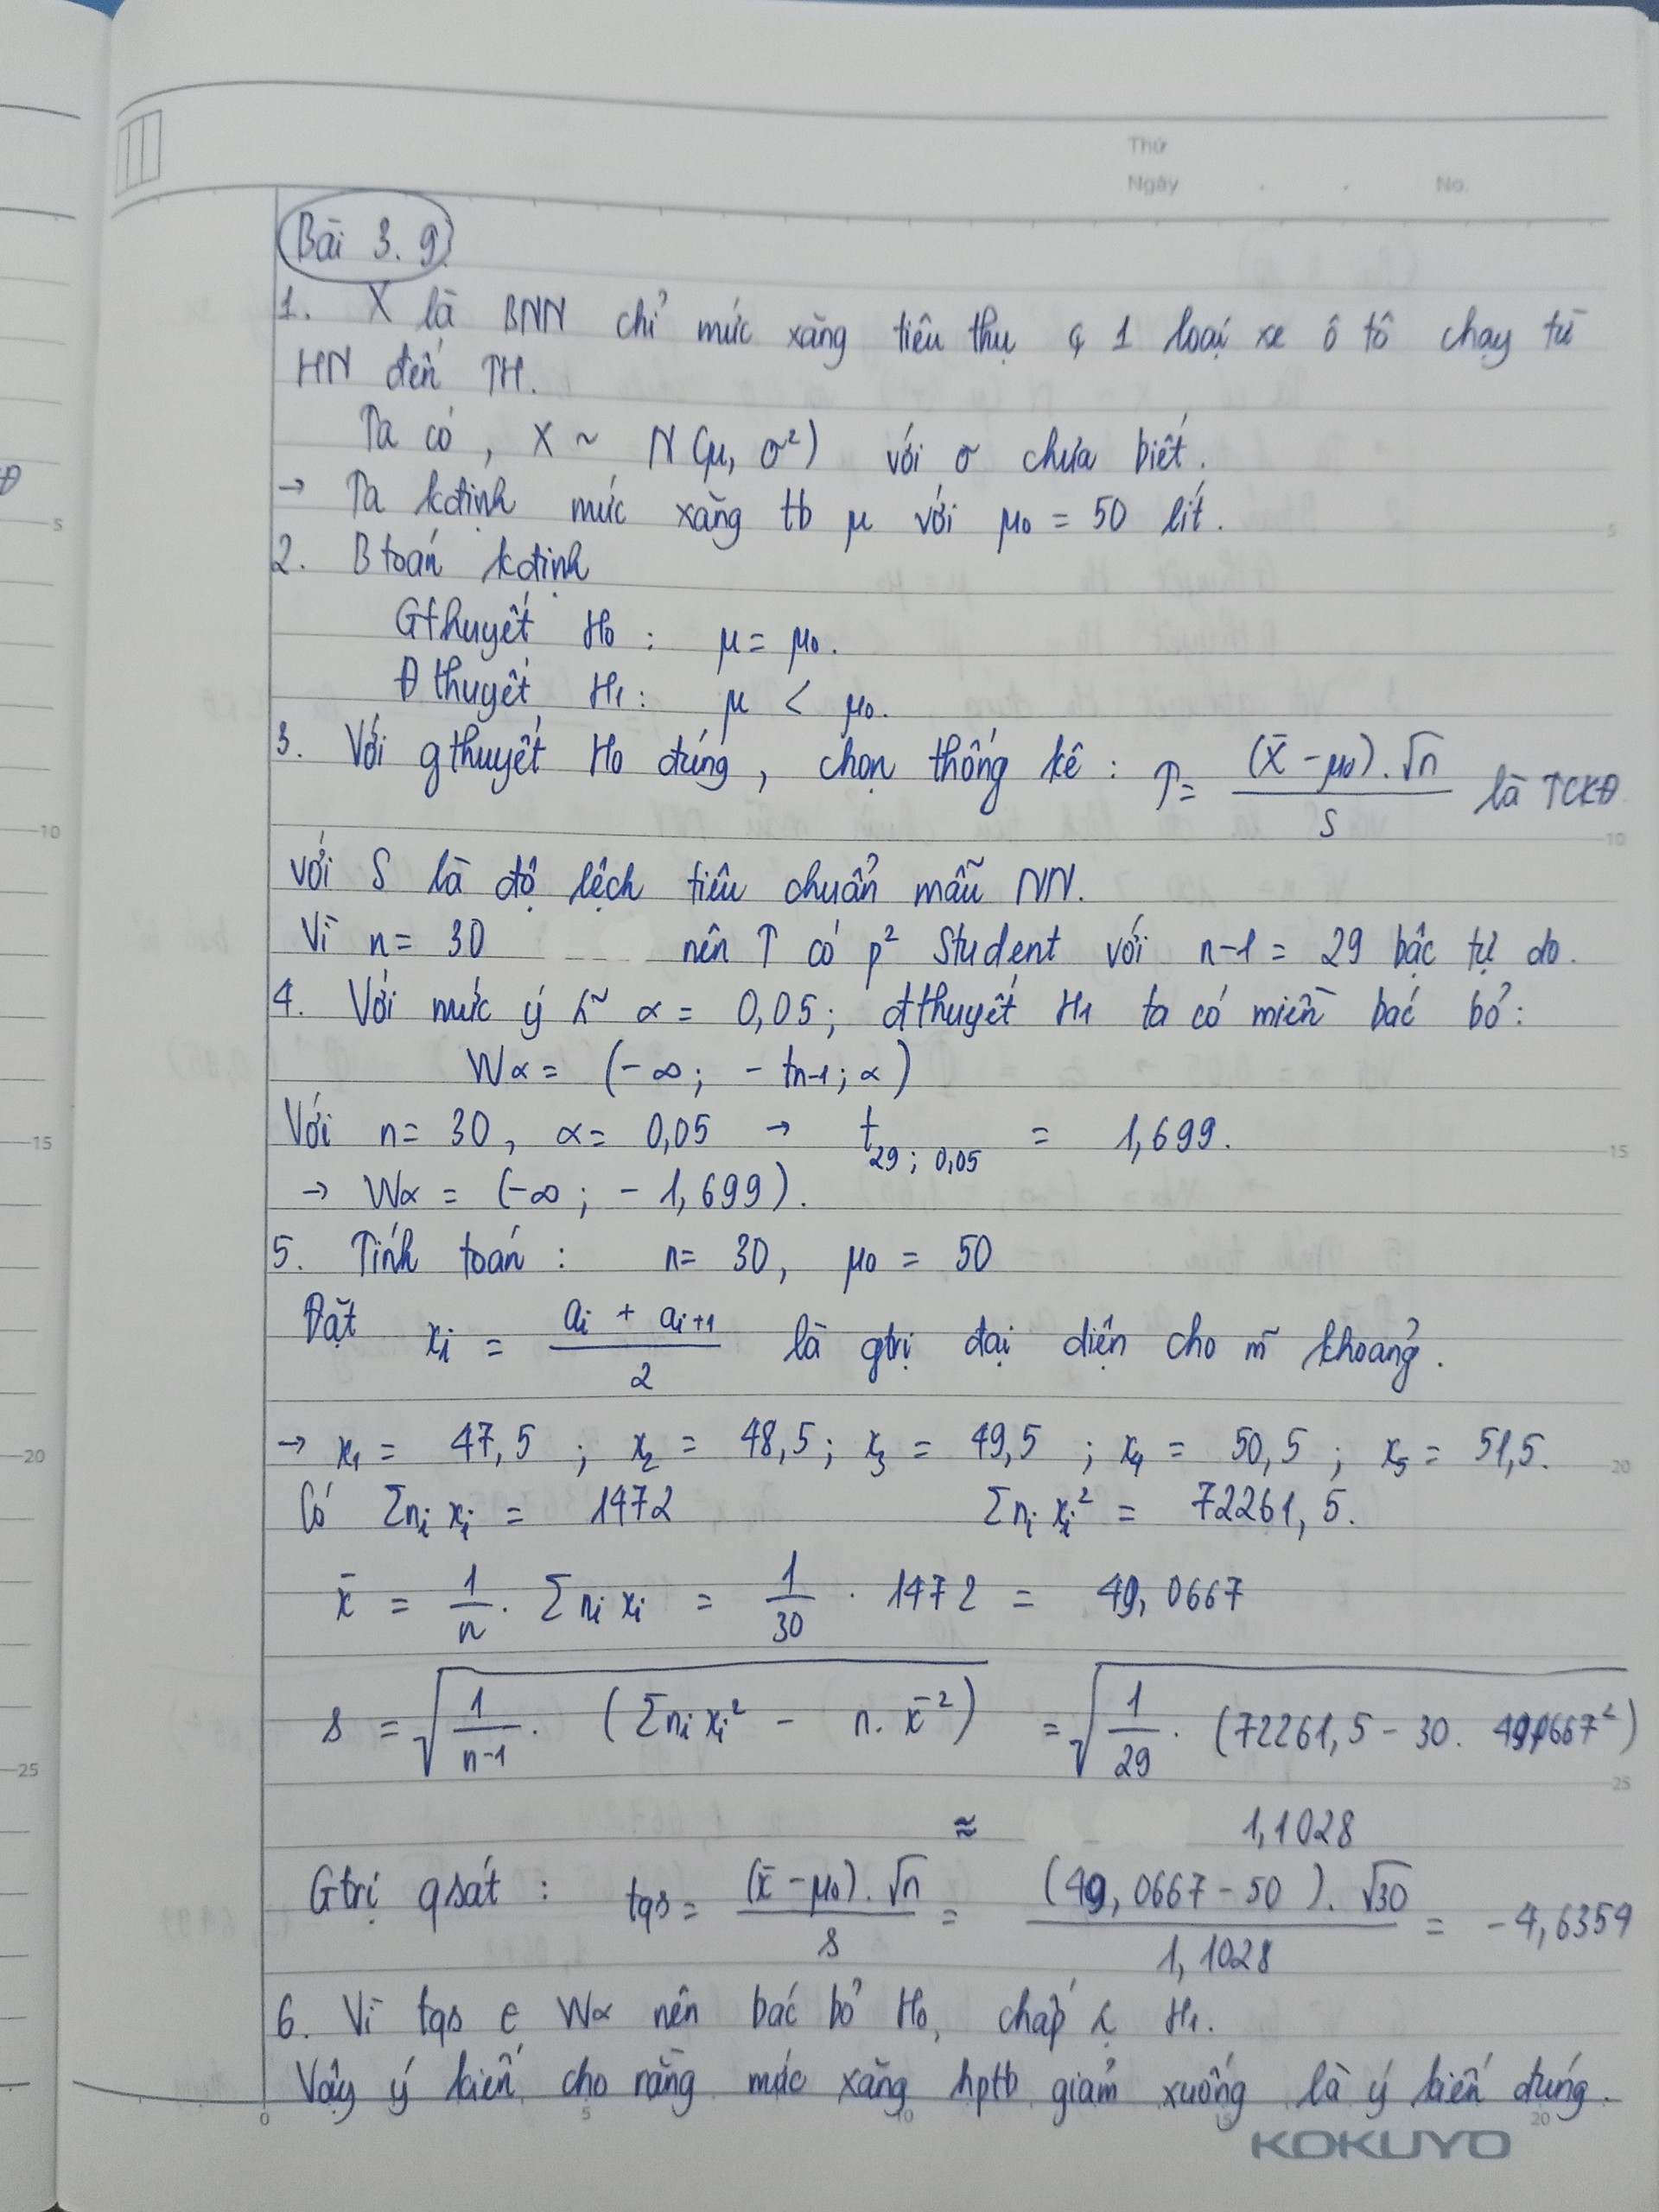 Thứ
Ngày . . No.
Bài 3.9
1. X là BNN chỉ mức xăng tiêu thụ của 1 loại xe ô tô chạy từ
HN đến TH.
Ta có, X ~ N(μ, σ²) với σ chưa biết.
→ Ta kđịnh mức xăng tb μ với μ₀ = 50 lít.
2. B toán kđịnh
Gthuyết H₀ : μ = μ₀.
Đthuyết H₁ : μ < μ₀.
3. Với gthuyết H₀ đúng, chọn thống kê : T = (X̄ - μ₀).√n / S là TCKĐ
với S là độ lệch tiêu chuẩn mẫu NN.
Vì n = 30 nên T có p² Student với n-1 = 29 bậc tự do.
4. Với mức ý α = 0,05; đthuyết H₁ ta có miền bác bỏ:
Wα = (-∞; - tn-1; α)
Với n = 30, α = 0,05 → t 29; 0,05 = 1,699.
→ Wα = (-∞; - 1,699).
5. Tính toán : n = 30, μ₀ = 50
Đặt xi = (ai + ai+1) / 2 là gtrị đại diện cho m̃ khoảng.
→ x₁ = 47,5 ; x₂ = 48,5; x₃ = 49,5 ; x₄ = 50,5 ; x₅ = 51,5.
Có Σni xi = 1472 Σni xi² = 72261,5.
x̄ = 1/n . Σni xi = 1/30 . 1472 = 49,0667
s = √(1/(n-1) . (Σni xi² - n. x̄²)) = √(1/29 . (72261,5 - 30. 49,0667²)
≈ 1,1028
Gtrị qsát : tqs = (x̄ - μ₀).√n / s = (49,0667 - 50).√30 / 1,1028 = -4,6354
6. Vì tqs ∈ Wα nên bác bỏ H₀, chấp H₁.
Vậy ý kiến cho rằng mức xăng hptb giảm xuống là ý kiến đúng.
KOKUYO